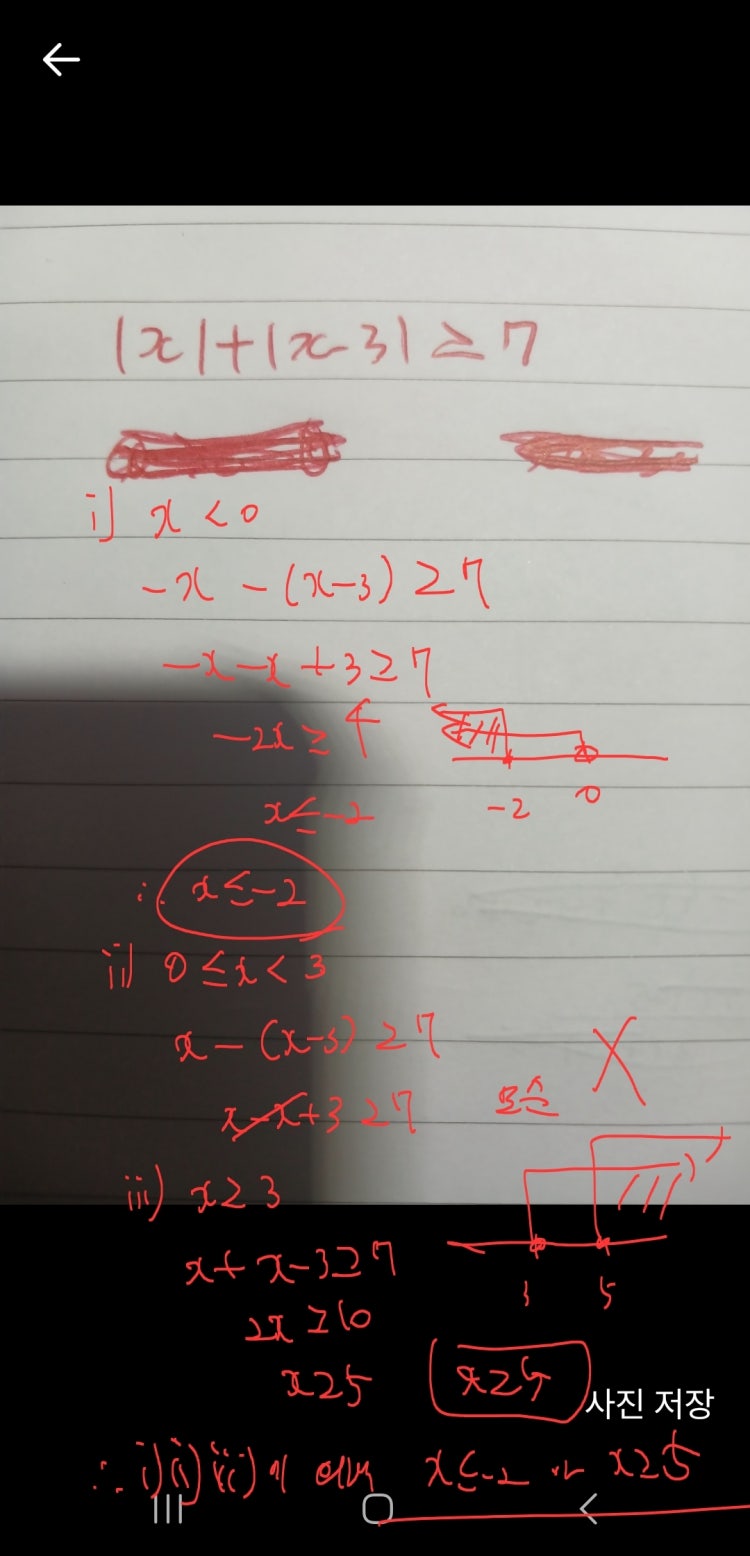 |x|+|x-3| ≥ 7
i) x < 0
-x - (x-3) ≥ 7
-x-x+3 ≥ 7
-2x ≥ 4
-2 0
x ≤ -2
∴ x ≤ -2
ii) 0 ≤ x < 3
x - (x-3) ≥ 7
x-x+3 ≥ 7 모순 X
iii) x ≥ 3
x+x-3 ≥ 7
3 5
2x ≥ 10
x ≥ 5 x ≥ 5
사진 저장
∴ i) ii) iii)에 의해 x ≤ -2 or x ≥ 5